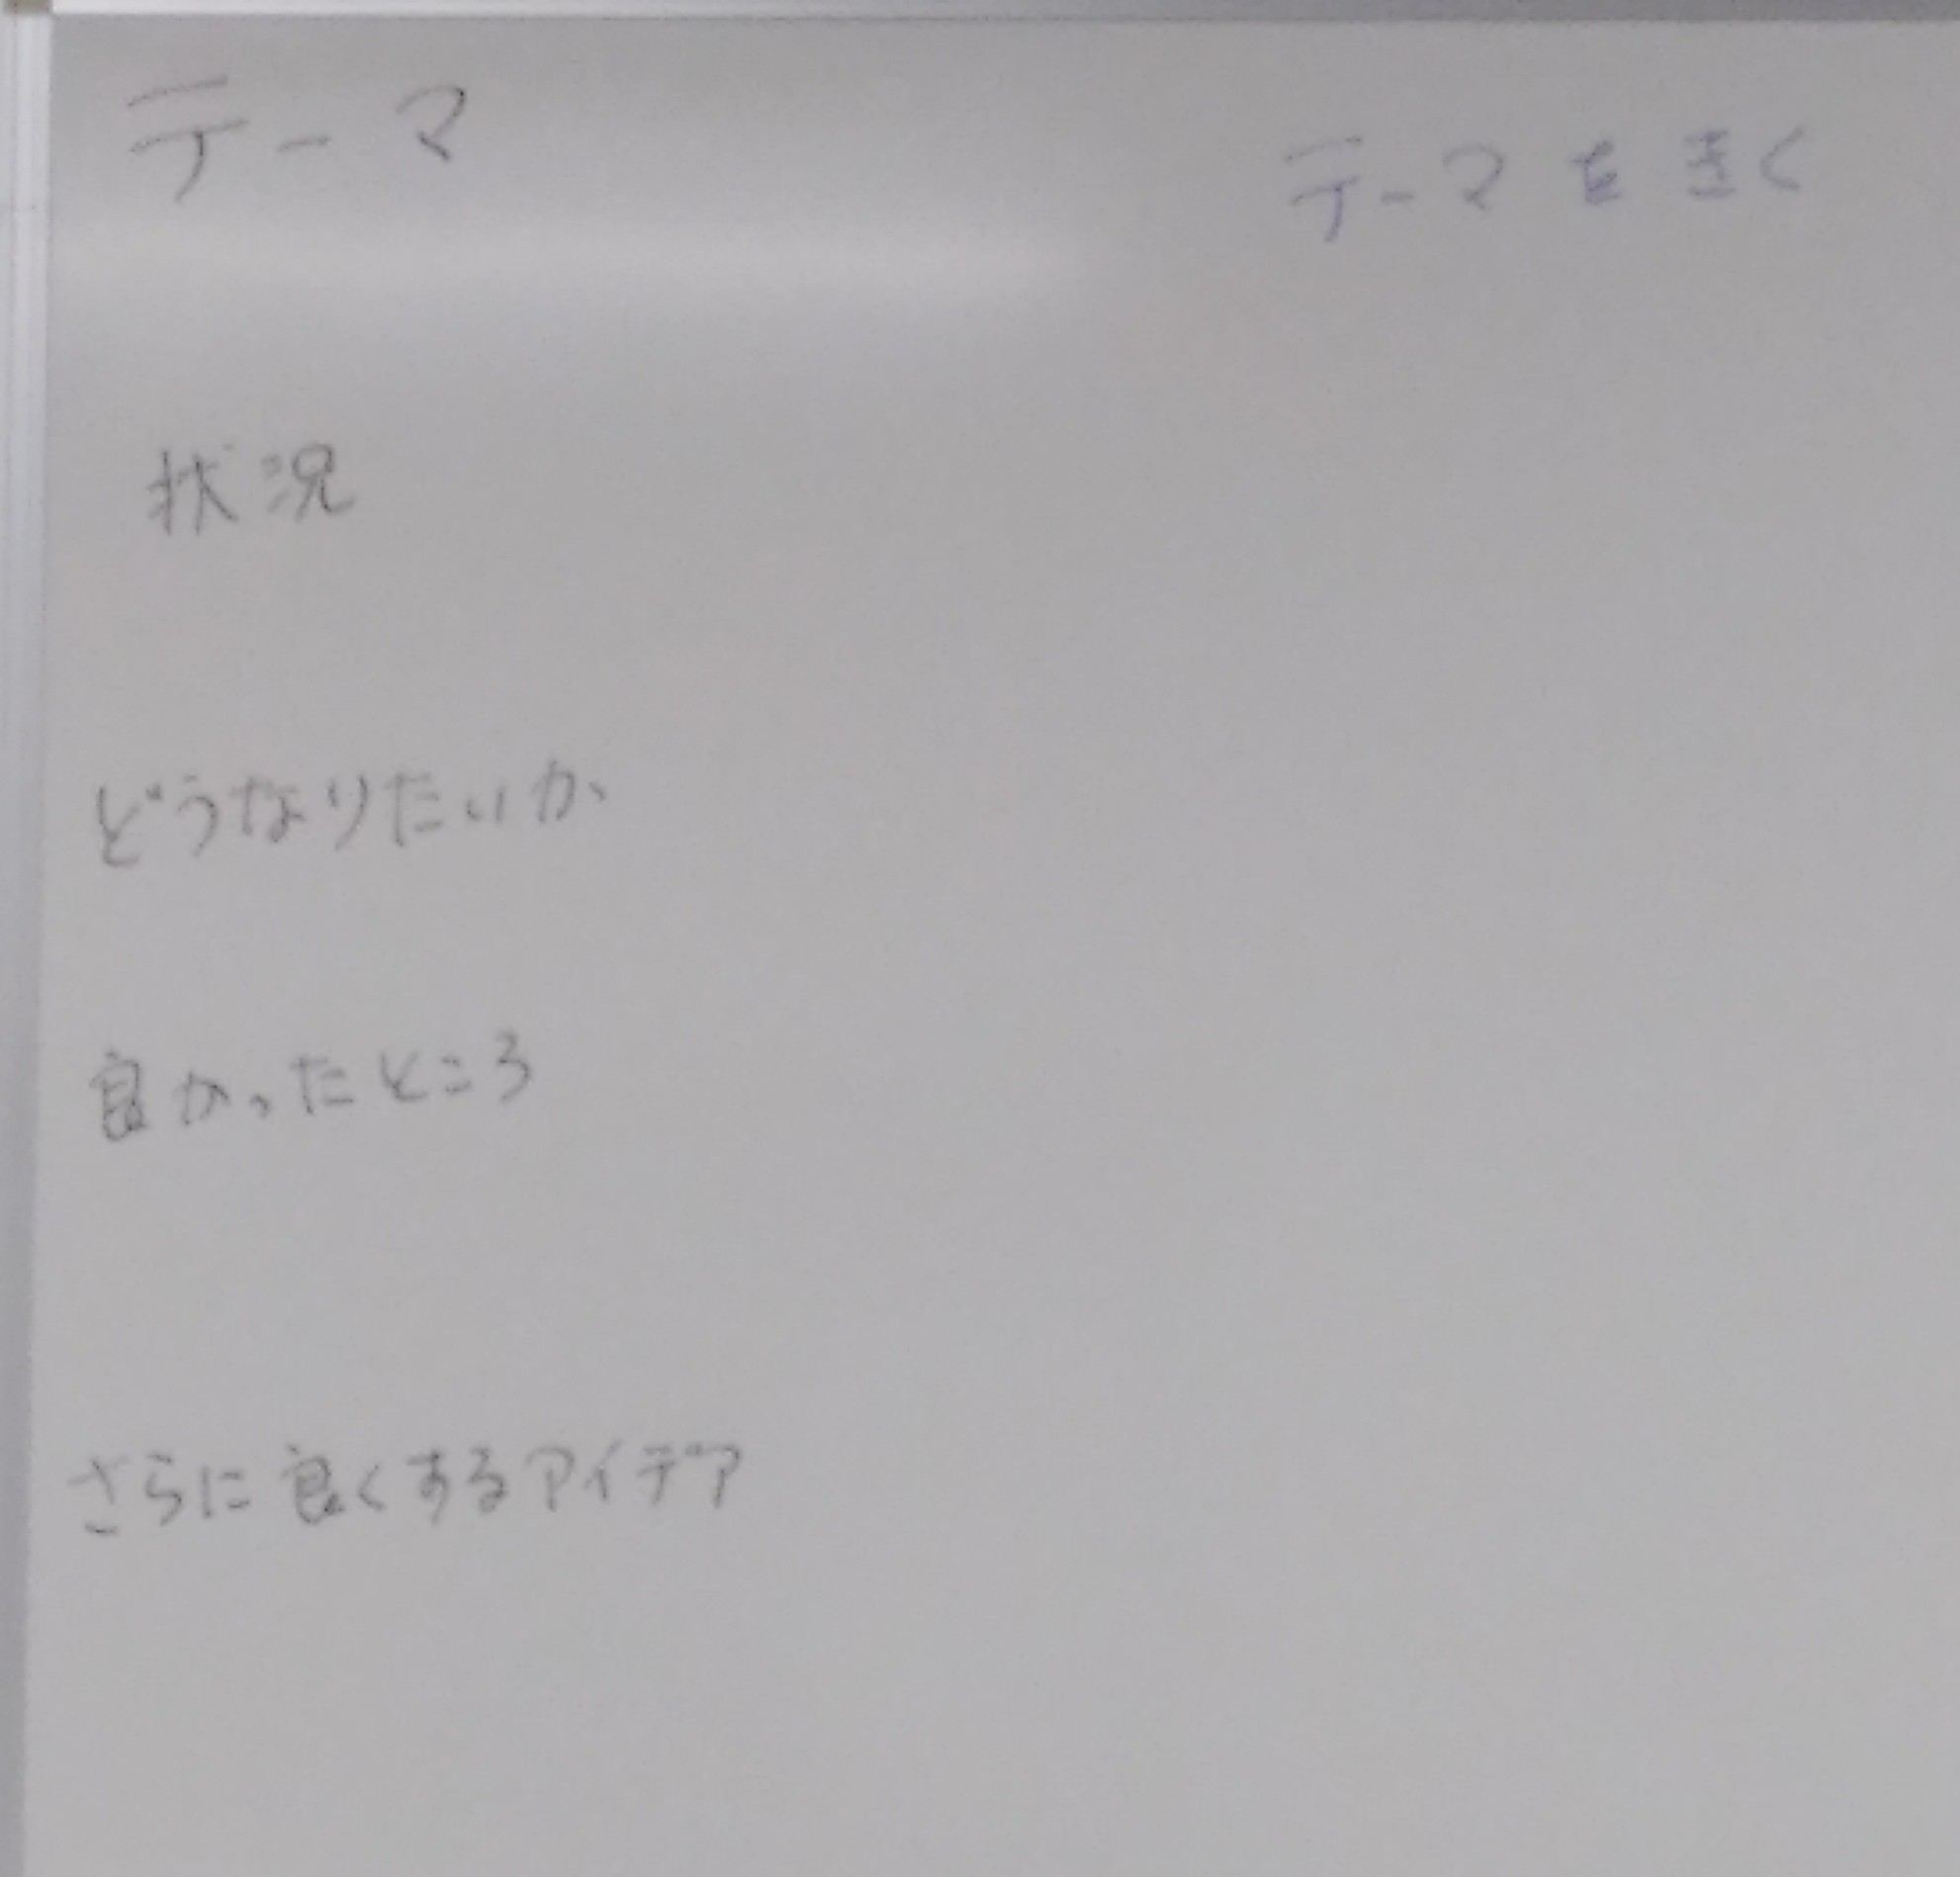 テーマ
テーマを書く
状況
どうなりたいか
良かったところ
さらに良くするアイデア